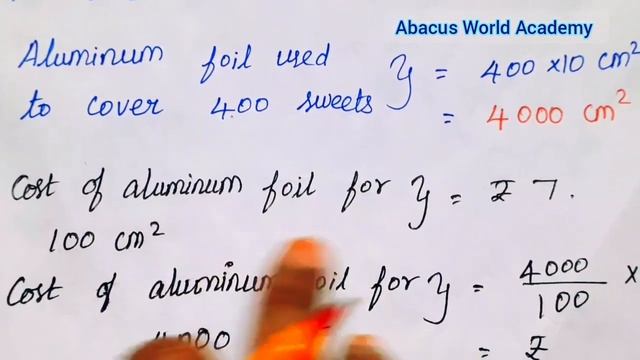 Abacus World Academy
Aluminum foil used } = 400 ×10 cm²
to cover 400 sweets = 4000 cm²
Cost of aluminum foil for } = ₹ 7.
100 cm²
Cost of aluminum foil for } = 4000/100 ×
4000 = ₹